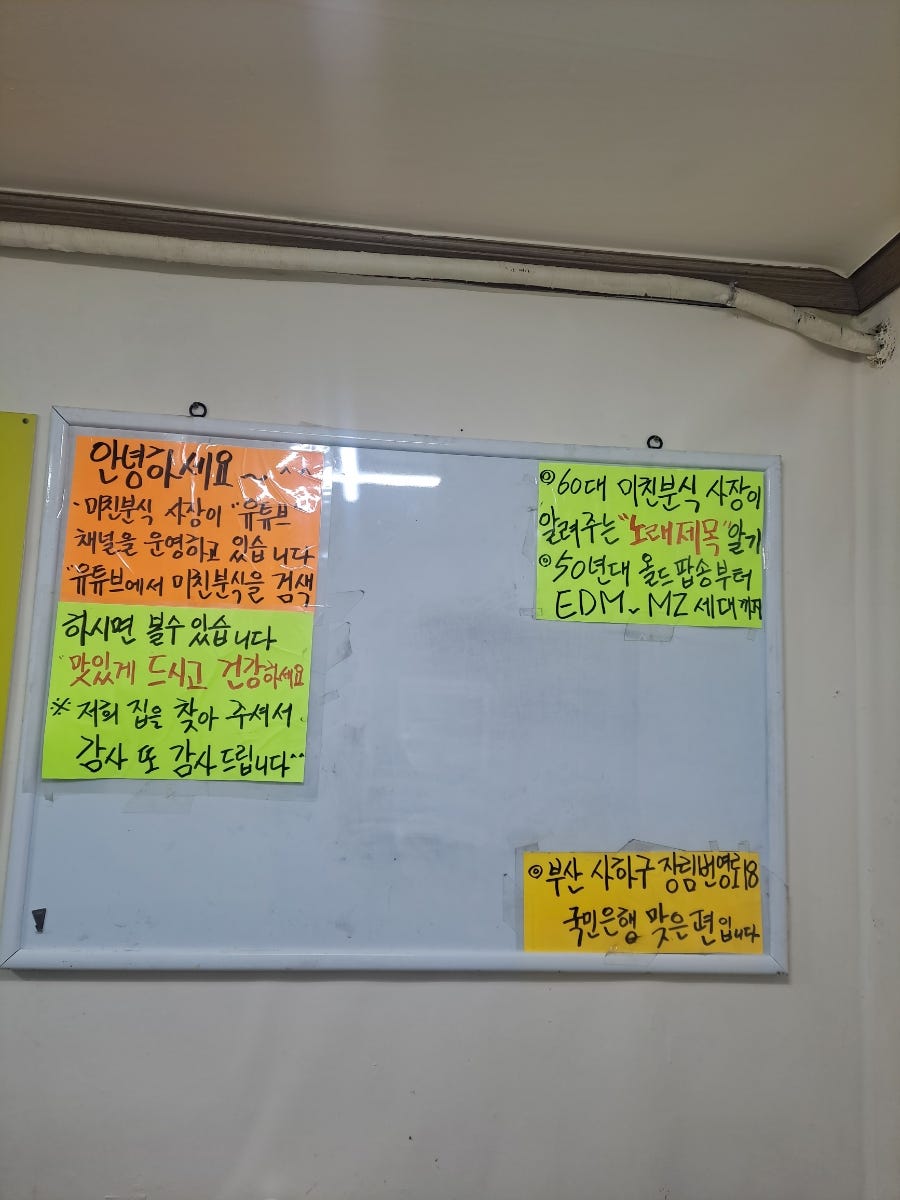 안녕하세요~ ^^
미친분식 사장이 "유튜브"
채널을 운영하고 있습니다
"유튜브에서 미친분식을 검색
하시면 볼수있습니다
"맛있게 드시고 건강하세요
※ 저희 집을 찾아 주셔서
감사 또 감사드립니다^^
◎60대 미친분식 사장이
알려주는 "노래제목" 알기
◎50년대 올드팝송부터
EDM~MZ세대까지
◎부산 사하구 장림번영로18
국민은행 맞은편입니다